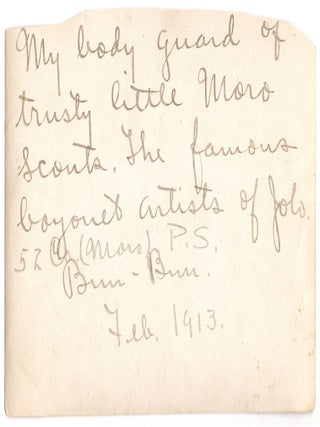 My body guard of
trusty little Moro
Scouts. The famous
bayonet artists of Jolo.
52 Co. (Moro) P.S.
Bun-Bun.
Feb. 1913.